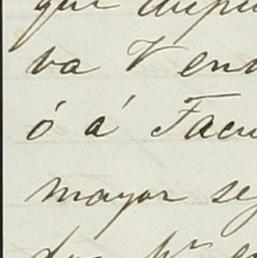 que
va Vend
ó á Facu
mayor se